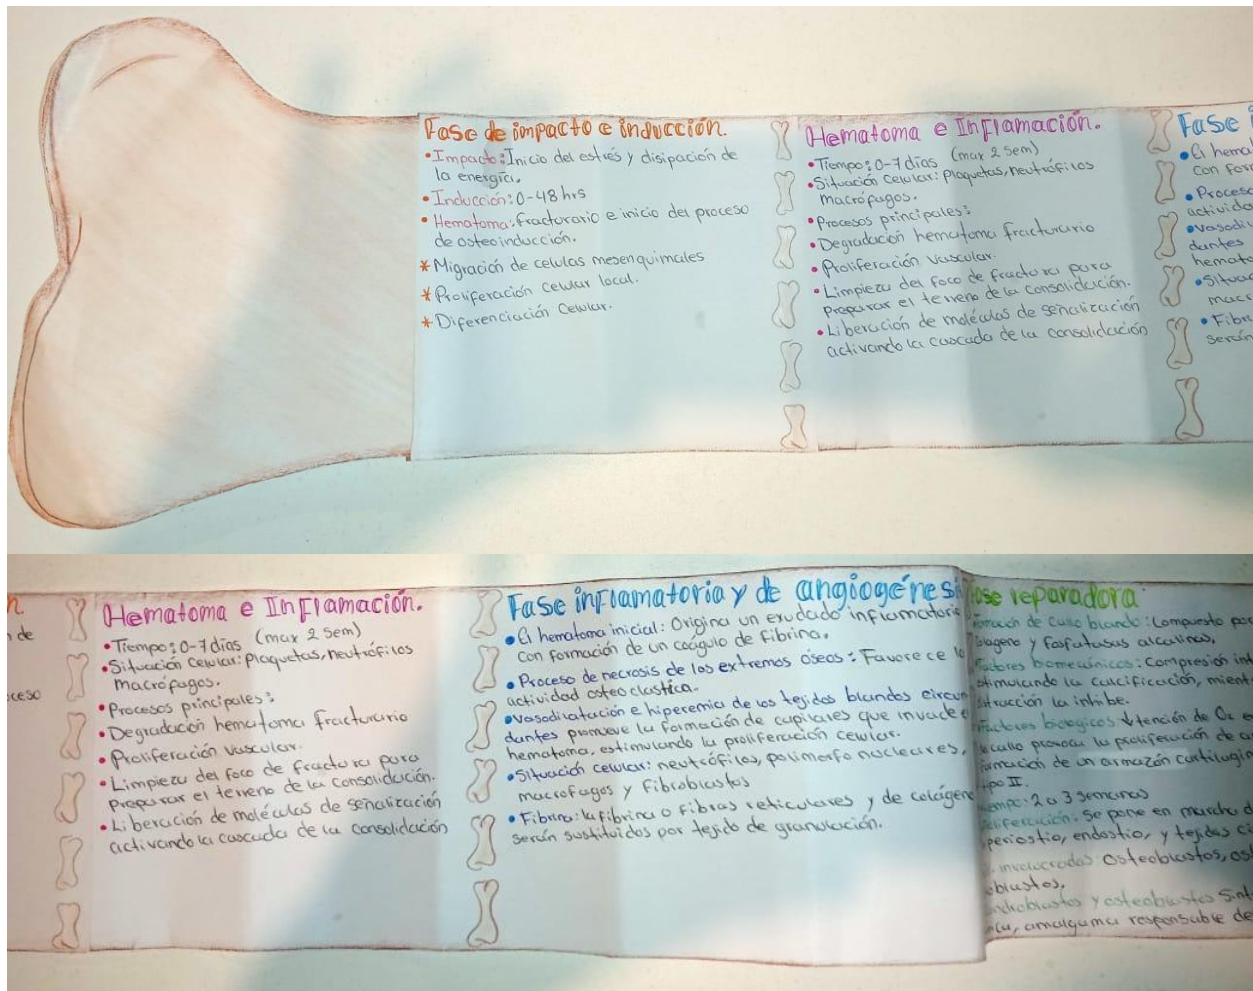 Fase de impacto e inducción.
•Impacto: Inicio del estrés y disipación de
la energía.
•Inducción: 0-48 hrs
•Hematoma: fracturario e inicio del proceso
de osteoinducción.
*Migración de celulas mesenquimales
*Proliferación celular local.
*Diferenciación Celular.
Hematoma e Inflamación.
•Tiempo: 0-7 días (max 2 sem)
•Situación Celular: plaquetas, neutrófilos
macrófagos.
•Procesos principales:
•Degradación hematoma fracturario
•Proliferación vascular.
•Limpieza del foco de fractura para
preparar el terreno de la consolidación.
•Liberación de moléculas de señalización
activando la cascada de la consolidación
Fase i
•El hema
Con for
•Proceso
activida
•Vasodi
dantes
hemato
•Situac
macr
•Fibri
serán
n
de
ceso
Hematoma e Inflamación.
•Tiempo: 0-7 días (max 2 sem)
•Situación Celular: plaquetas, neutrófilos
macrófagos.
•Procesos principales:
•Degradación hematoma fracturario
•Proliferación vascular.
•Limpieza del foco de fractura para
preparar el terreno de la consolidación.
•Liberación de moléculas de señalización
activando la cascada de la consolidación
Fase inflamatoria y de angiogénesi
•El hematoma inicial: Origina un exudado inflamatorio
con formación de un coágulo de fibrina.
•Proceso de necrosis de los extremos óseos: Favorece la
actividad osteoclastica.
•Vasodilatación e hiperemia de los tejidos blandos circun
dantes promueve la formación de capilares que invade e
hematoma, estimulando la proliferación celular.
•Situación celular: neutrófilos, polimorfo nucleares,
macrofagos y Fibroblastos
•Fibrina: la fibrina o fibras reticulares y de colágeno
serán sustituidos por tejido de granulación.
ase reparadora
rmación de callo blando: Compuesto por
olageno y fosfatasas alcalinas,
factores biomecánicos: Compresión int
stimulando la calcificación, mient
tracción la inhibe.
Factores biologicos: ↓tención de O₂ e
callo provoca la proliferación de
formación de un armazón cartilagin
tipo II.
iempo: 2 a 3 semanas
roliferación: Se pone en marcha
periostio, endostio, y tejidos ci
involucradas: Osteoblastos, ost
oblastos,
ndroblastos y osteoblastos Sint
amalgama responsable de